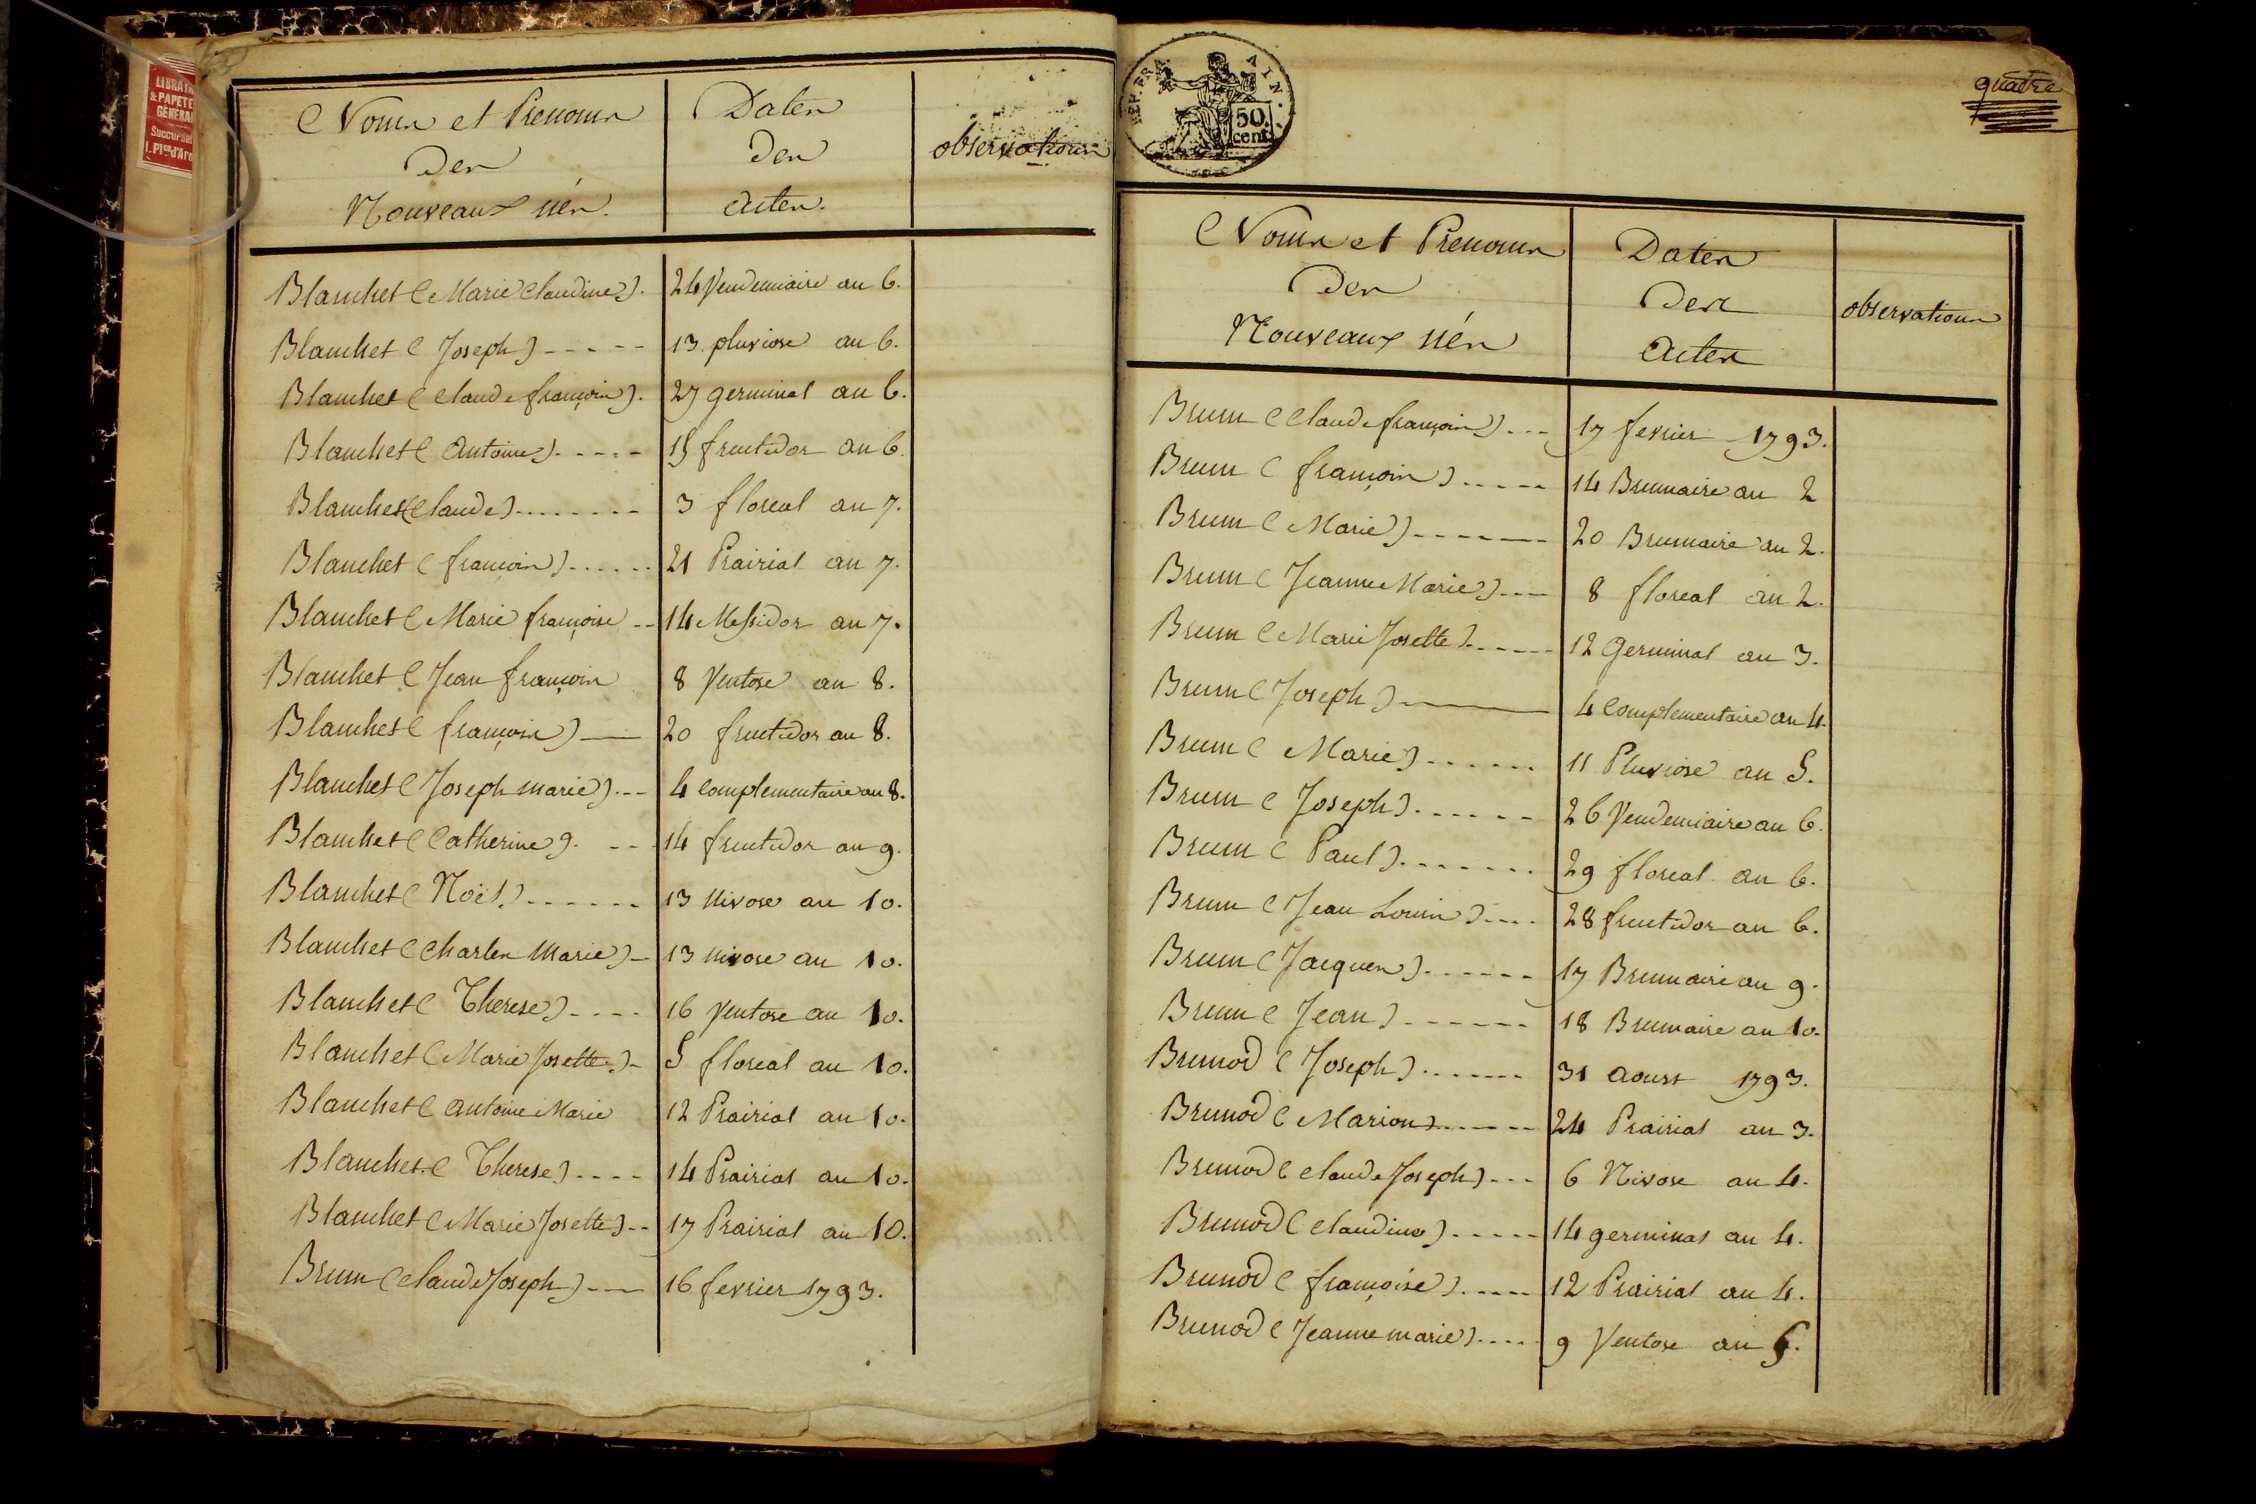 LIBRAI
& PAPETE
GÉNÉRAL
Succursal
1. Pl.ce d'Ar
Noms et Prenoms
Des
Nouveaux nés.
Dates
des
actes.
observations
Blanchet (Marie Claudine). 24 Vendemiaire an 6.
Blanchet (Joseph) ----- 13 pluviose an 6.
Blanchet (Claude françois). 27 germinal an 6.
Blanchet (Antoine) ----- 15 fructidor an 6.
Blanchet (Claude) -------- 3 floreal an 7.
Blanchet (françois) ------ 21 Prairial an 7.
Blanchet (Marie françoise -- 14 Messidor an 7.
Blanchet (Jean françois 8 Ventose an 8.
Blanchet (françois) — 20 fructidor an 8.
Blanchet (Joseph marie) --- 4 Complementaire an 8.
Blanchet (Catherine). -- 14 fructidor an 9.
Blanchet (Noël) ------ 13 Nivose an 10.
Blanchet (Charles Marie) - 13 Nivose an 10.
Blanchet (Therese) ---- 16 Ventose an 10.
Blanchet (Marie Josette) - 5 floreal an 10.
Blanchet (Antoine Marie 12 Prairial an 10.
Blanchet (Therese) ---- 14 Prairial an 10.
Blanchet (Marie Josette) -- 17 Prairial an 10.
Brun (Claude Joseph) --- 16 fevrier 1793.
REP. FRA. AIN.
50.
cent.
quatre
Noms et Prenoms
Des
Nouveaux nés
Dates
Des
Actes
observations
Brun (Claude françois) --- 17 fevrier 1793.
Brun (françois) ----- 14 Brumaire an 2
Brun (Marie) ------- 20 Brumaire an 2.
Brun (Jeanne Marie) --- 8 floreal an 2.
Brun (Marie Josette) ----- 12 Germinal an 3.
Brun (Joseph) ——— 4 Complementaire an 4.
Brun (Marie) ------ 11 Pluviose an 5.
Brun (Joseph) ------ 26 Vendemiaire an 6.
Brun (Paul) ------- 29 floreal an 6.
Brun (Jean Louis) ---- 28 fructidor an 6.
Brun (Jacques) ------ 17 Brumaire an 9.
Brun (Jean) ------ 18 Brumaire an 10.
Brunod (Joseph) ------ 31 Aoust 1793.
Brunod (Marion) ------ 24 Prairial an 3.
Brunod (Claude Joseph) --- 6 Nivose an 4.
Brunod (Claudine) ----- 14 germinal an 4.
Brunod (françoise) ----- 12 Prairial an 4.
Brunod (Jeanne marie) ---- 9 Ventose an 5.